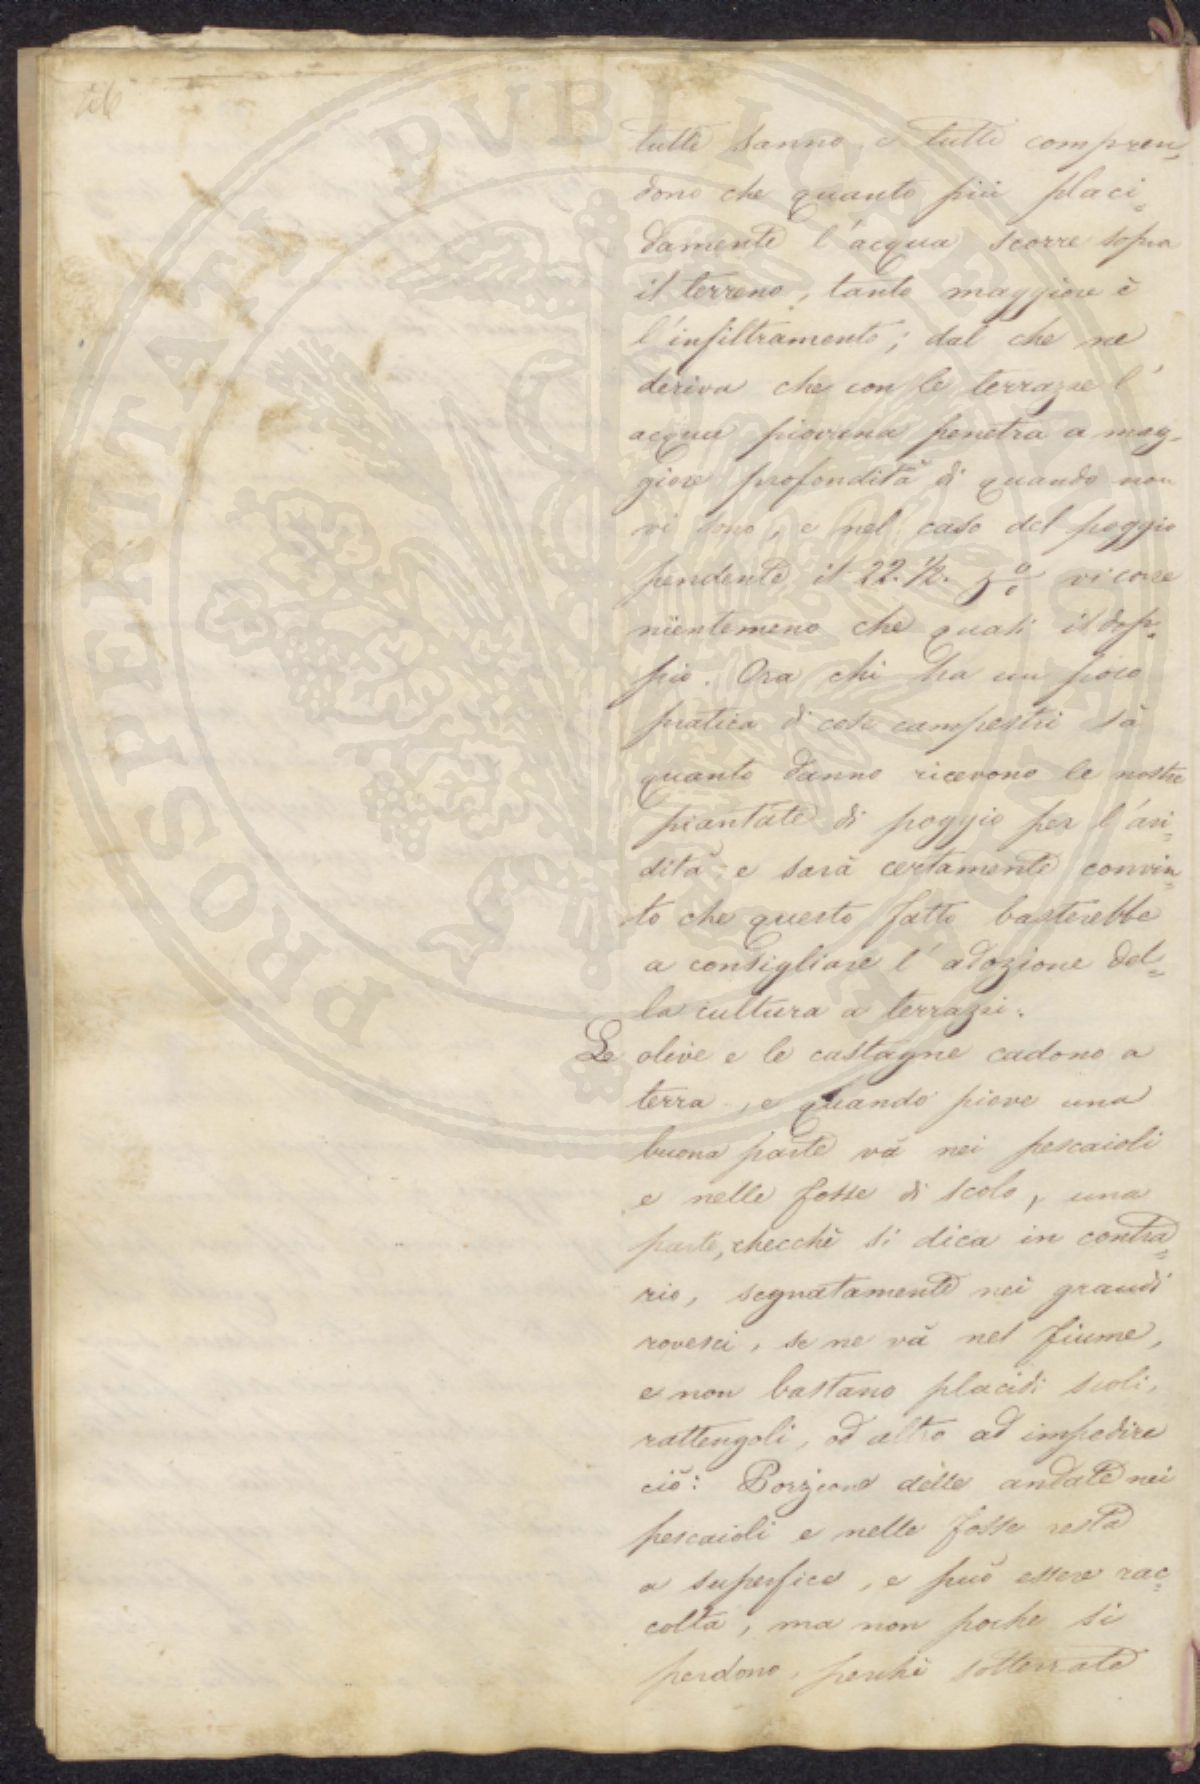 66
tutti sanno, e tutti compren=
dono che quanto più placi=
damente l'acqua scorre sopra
il terreno, tanto maggiore è
l'infiltramento; dal che ne
deriva che con le terrazze l'
acqua piovana penetra a mag=
giore profondità di quando non
vi sono, e nel caso del poggio
pendente il 22. 1/2. p% vi corre
nientemeno che quasi il dop=
pio. Ora chi ha un poco
pratica di cose campestri sà
quanto danno ricevono le nostre
piantate di poggio per l'ari=
dità, e sarà certamente convin=
to che questo fatto basterebbe
a consigliare l'adozione del=
la cultura a terrazzi.
Le olive e le castagne cadono a
terra, e quando piove una
buona parte và nei pescaioli
e nelle fosse di scolo, una
parte, checchè si dica in contra=
rio, segnatamente nei grandi
rovesci, se ne và nel fiume,
e non bastano placidi scoli,
rattengoli, od altro ad impedire
ciò: Porzione delle andate nei
pescaioli e nelle fosse resta
a superfice, e può essere rac=
colta, ma non poche si
perdono, perchè sotterrate
PROSPERITATI PVBLICAE AVGENDAE